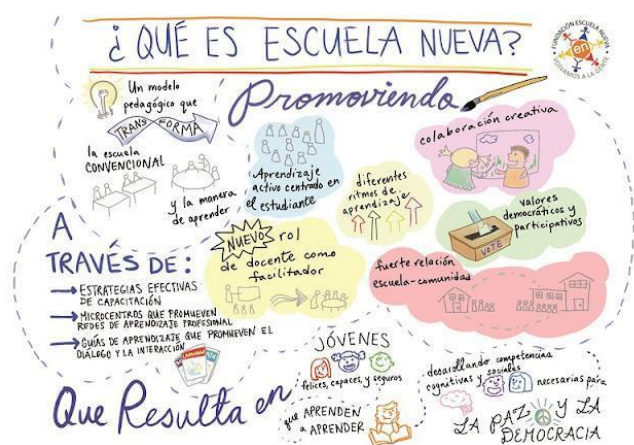 ¿QUÉ ES ESCUELA NUEVA?
FUNDACIÓN ESCUELA NUEVA
VOLVAMOS A LA GENTE
en
Un modelo
pedagógico que
TRANSFORMA
la escuela
CONVENCIONAL
y la manera
de aprender
Promoviendo
Aprendizaje
activo centrado en
el estudiante
diferentes
ritmos de
aprendizaje
colaboración creativa
valores
democráticos y
participativos
VOTE
¡NUEVO! rol
de docente como
facilitador
fuerte relación
escuela-comunidad
A
TRAVÉS DE:
ESTRATEGIAS EFECTIVAS
DE CAPACITACIÓN
MICROCENTROS QUE PROMUEVEN
REDES DE APRENDIZAJE PROFESIONAL
GUÍAS DE APRENDIZAJE QUE PROMUEVEN EL
DIÁLOGO Y LA INTERACCIÓN
Que Resulta en
JÓVENES
felices, capaces, y seguros
que APRENDEN
a APRENDER
desarollando competencias
cognitivas y sociales
necesarias para
LA PAZ Y LA
DEMOCRACIA